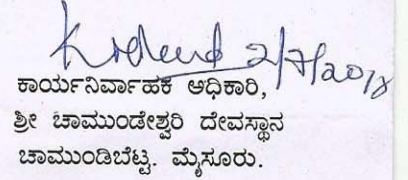 2/7/2018
ಕಾರ್ಯನಿರ್ವಾಹಕ ಅಧಿಕಾರಿ,
ಶ್ರೀ ಚಾಮುಂಡೇಶ್ವರಿ ದೇವಸ್ಥಾನ
ಚಾಮುಂಡಿಬೆಟ್ಟ. ಮೈಸೂರು.